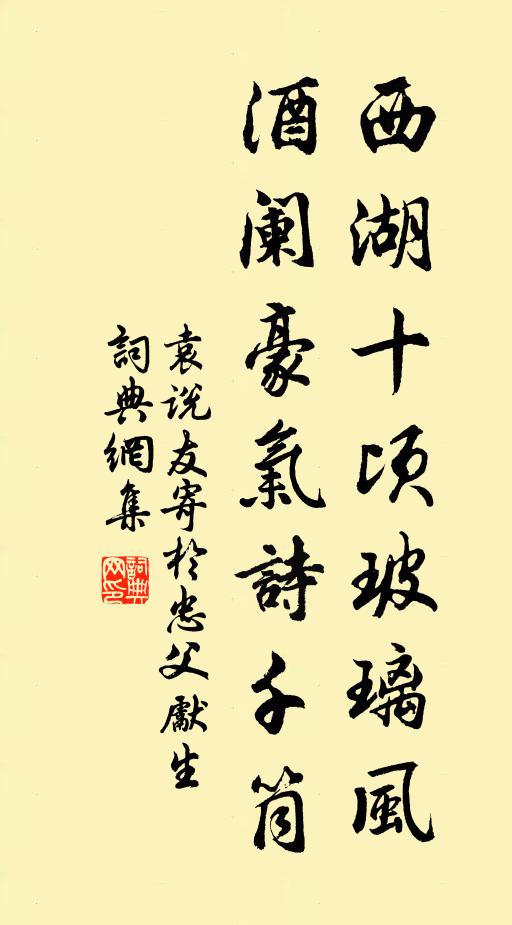 西湖十頃玻璃風
酒阑豪氣詩千筒
袁说友寄於忠父獻生
詞典網集
詞典
网印